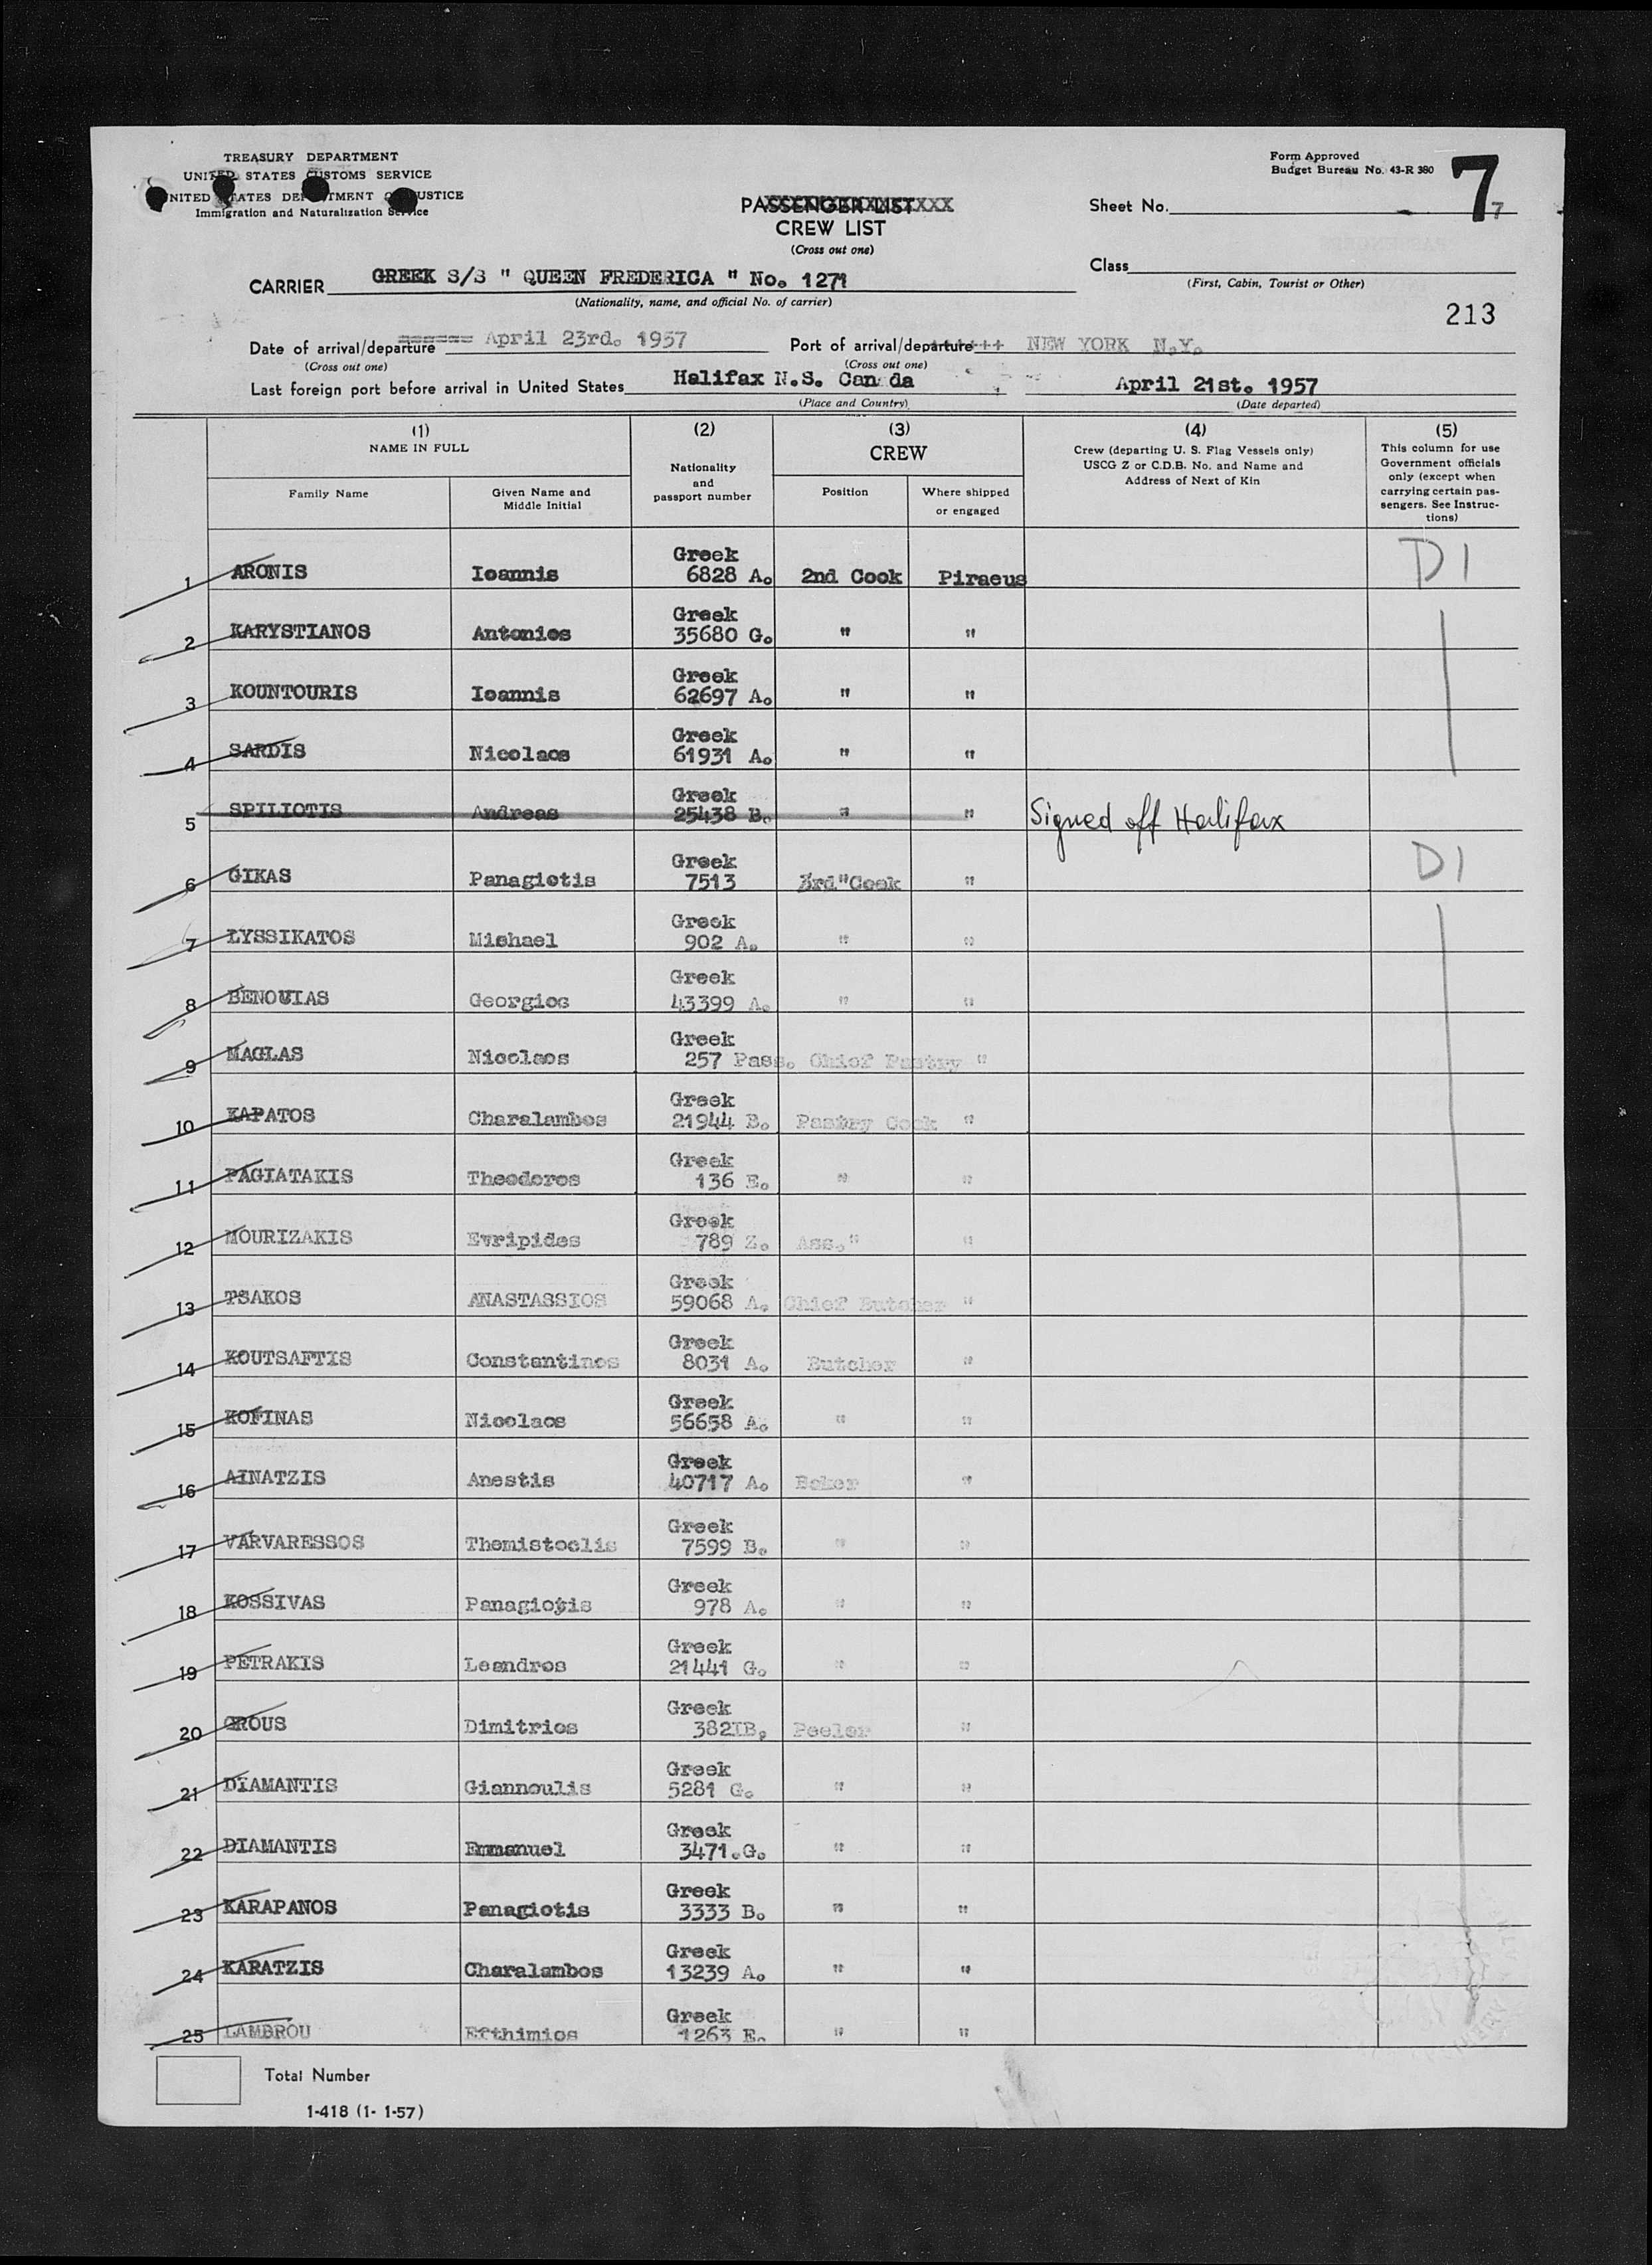 TREASURY DEPARTMENT
UNITED STATES CUSTOMS SERVICE
UNITED STATES DEPARTMENT OF JUSTICE
Immigration and Naturalization Service
Form Approved
Budget Bureau No. 43-R 380
7
PASSENGER LIST
CREW LIST
(Cross out one)
Sheet No. 7
CARRIER GREEK S/S " QUEEN FREDERICA " No. 1271
(Nationality, name, and official No. of carrier)
Class
(First, Cabin, Tourist or Other)
213
Date of arrival/departure April 23rd. 1957 Port of arrival/departure NEW YORK N.Y.
(Cross out one) (Cross out one)
Last foreign port before arrival in United States Halifax N.S. Canada April 21st. 1957
(Place and Country) (Date departed)
(1) NAME IN FULL
Family Name
Given Name and Middle Initial
(2)
Nationality and passport number
(3) CREW
Position
Where shipped or engaged
(4)
Crew (departing U. S. Flag Vessels only)
USCG Z or C.D.B. No. and Name and
Address of Next of Kin
(5)
This column for use
Government officials
only (except when
carrying certain pas-
sengers. See Instruc-
tions)
1 ARONIS Ioannis Greek 6828 A. 2nd Cook Piraeus D1
2 KARYSTIANOS Antonios Greek 35680 G. " "
3 KOUNTOURIS Ioannis Greek 62697 A. " "
4 SARDIS Nicolaos Greek 61931 A. " "
5 SPILIOTIS Andreas Greek 25438 B. " " Signed off Halifax
6 GIKAS Panagiotis Greek 7513 3rd"Cook " D1
7 LYSSIKATOS Michael Greek 902 A. " "
8 BENOUIAS Georgios Greek 43399 A. " "
9 MAGLAS Nicolaos Greek 257 Pass. Chief Pastry "
10 KAPATOS Charalambos Greek 21944 B. Pastry Cook "
11 PAGIATAKIS Theodoros Greek 136 E. " "
12 MOURIZAKIS Evripides Greek 789 Z. Ass." "
13 TSAKOS ANASTASSIOS Greek 59068 A. Chief Butcher "
14 KOUTSAFTIS Constantinos Greek 8031 A. Butcher "
15 KOFINAS Nicolaos Greek 56658 A. " "
16 AINATZIS Anestis Greek 40717 A. Baker "
17 VARVARESSOS Themistoclis Greek 7599 B. " "
18 KOSSIVAS Panagiotis Greek 978 A. " "
19 PETRAKIS Leandros Greek 21441 G. " "
20 GROUS Dimitrios Greek 382IB. Peeler "
21 DIAMANTIS Giannoulis Greek 5281 G. " "
22 DIAMANTIS Emmanuel Greek 3471.G. " "
23 KARAPANOS Panagiotis Greek 3333 B. " "
24 KARATZIS Charalambos Greek 13239 A. " "
25 LAMBROU Efthimios Greek 1263 E. " "
Total Number
1-418 (1- 1-57)